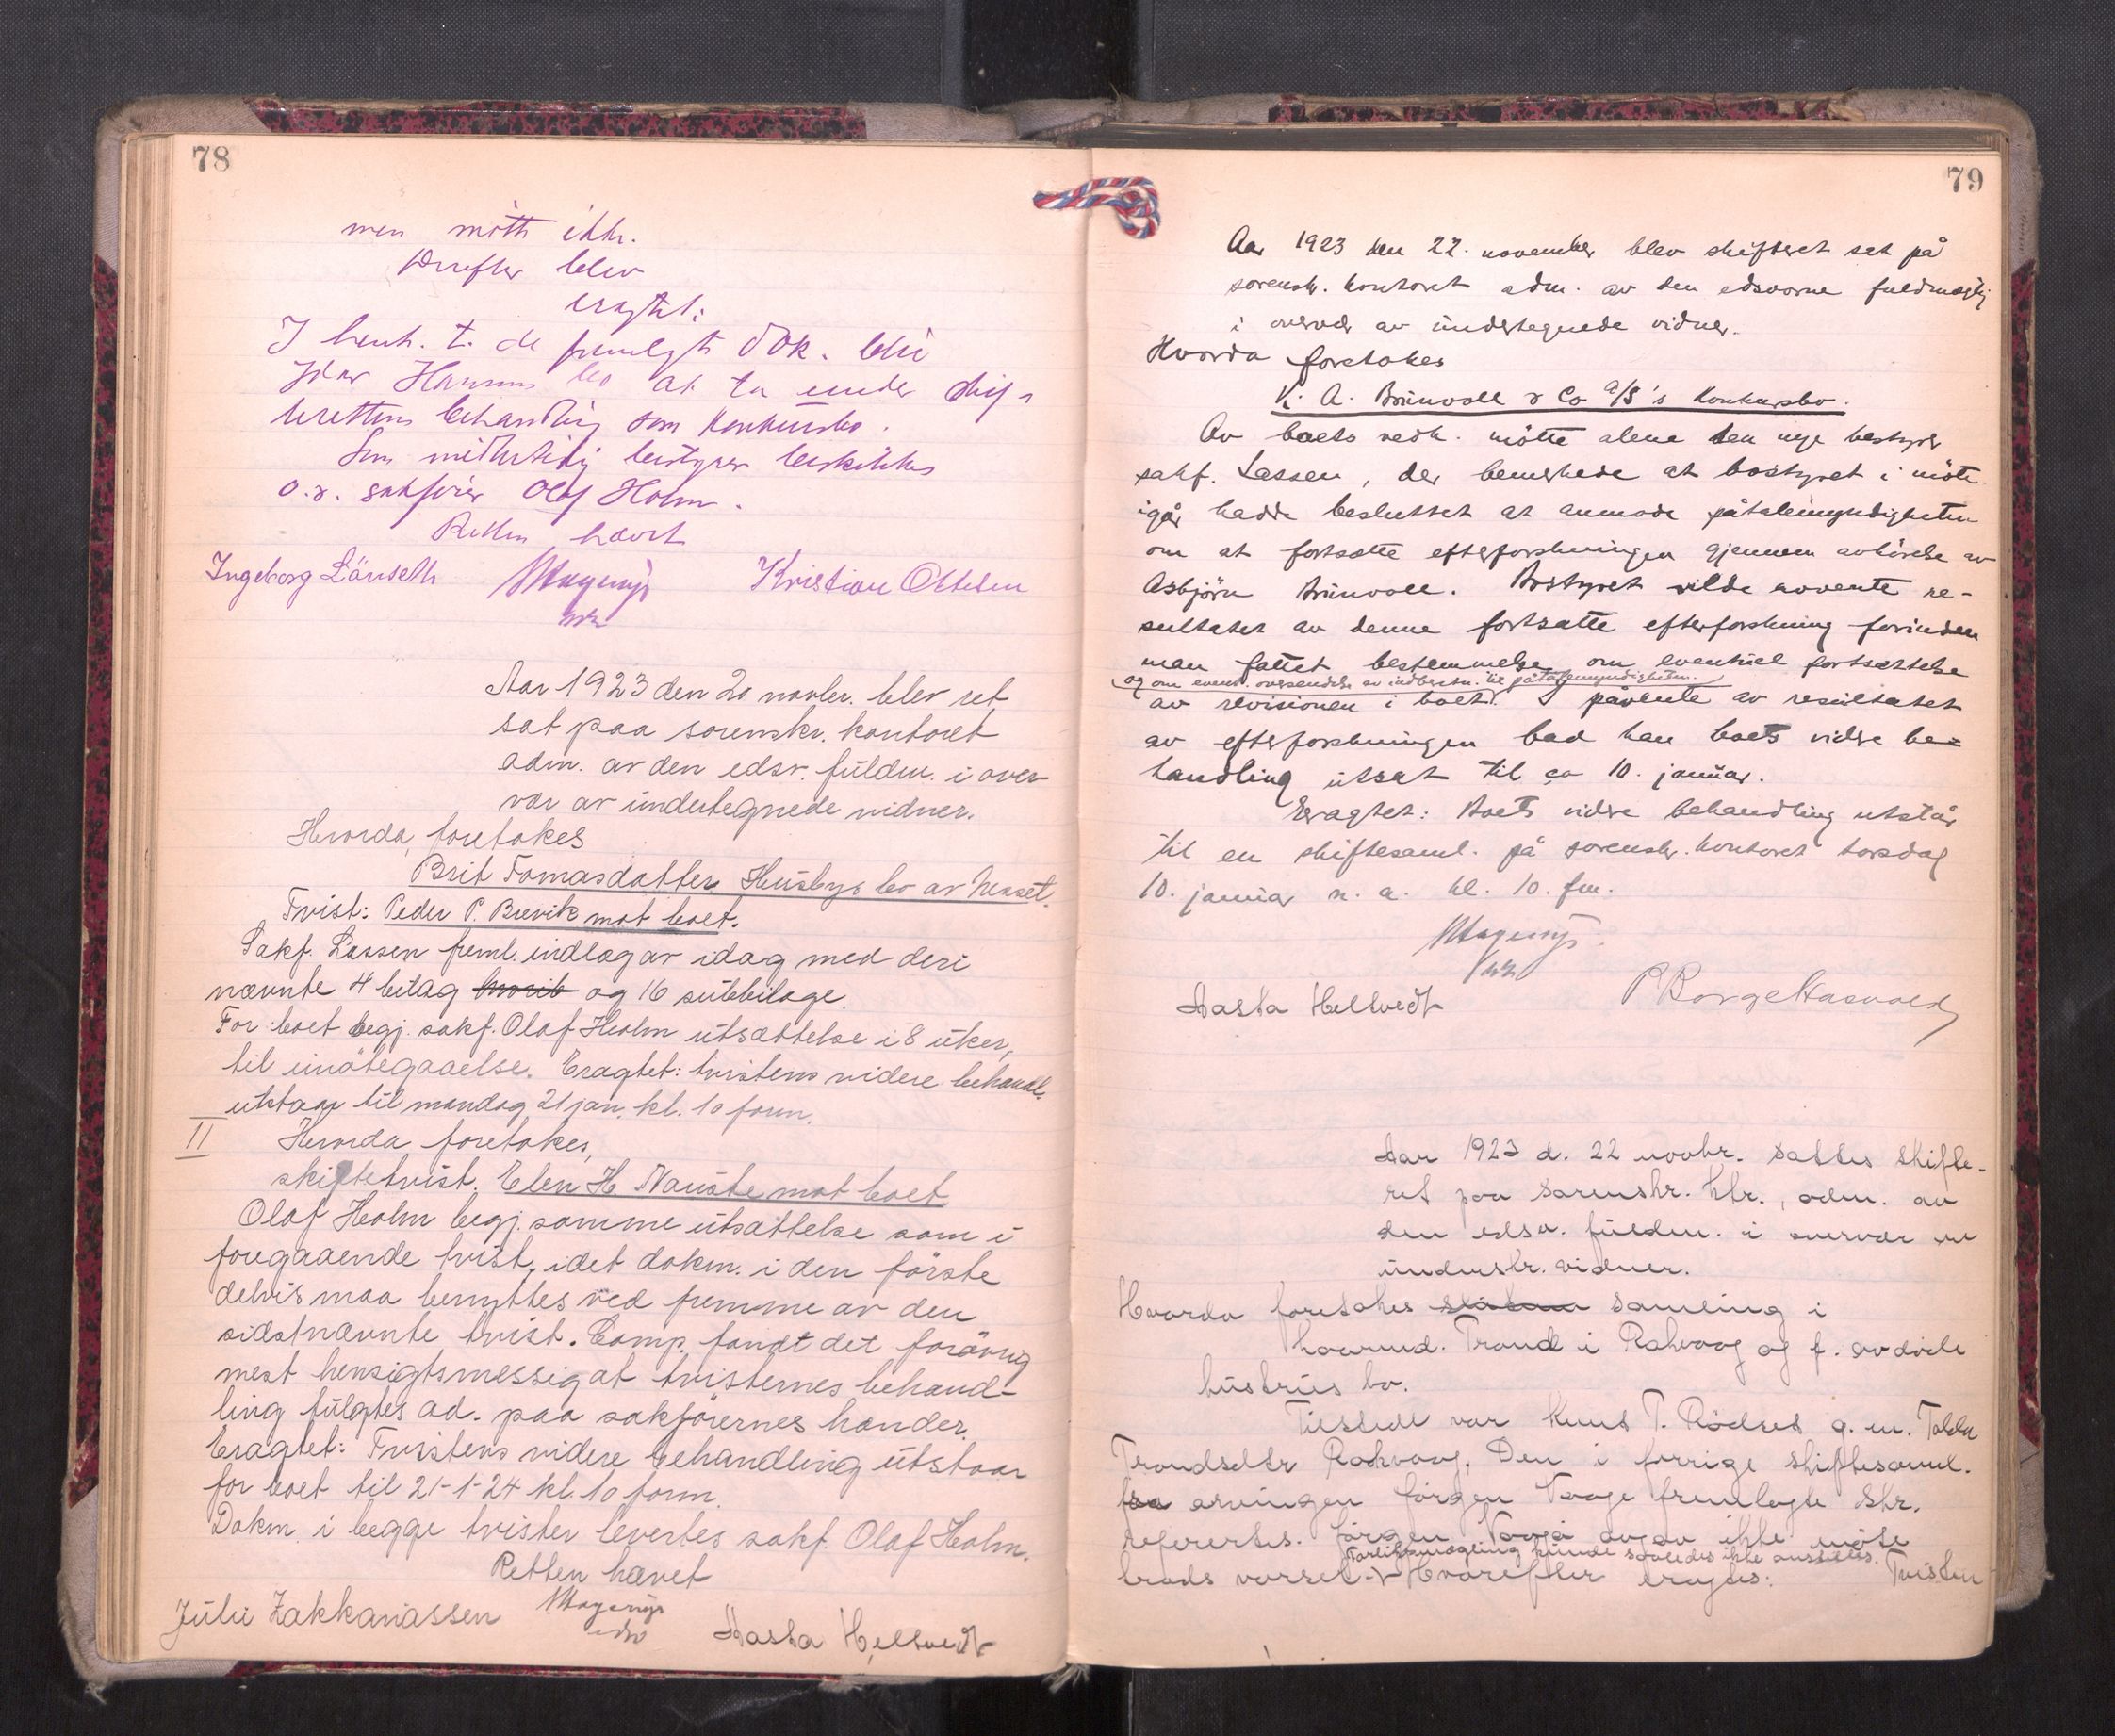 78
men mötte ikke.
Derefter blev
eragtet:
I henh. t. de fremlagte dok. blir
Idar bo at ta under skif-
terettens behandling som konkursbo.
Som midlertidig bestyrer beskikkes
o.r. sakförer Olaf Holm.
Retten hævet
Ingeborg Länseth Kristian Ottesen
Aar 1923 den 20 novbr. blev ret
sat paa sorenskr. kontoret
adm. av den edsv. fuldm. i over-
vær av undertegnede vidner.
Hvorda, foretokes
Brit Tomasdatter Husbys bo av Nesset.
Tvist: Peder P. Brevik mot boet.
Sakf. Lassen freml. indlæg av idag med deri
nævnte 4 bilag og 16 subbilage.
For boet begj. sakf. Olaf Holm utsættelse i 8 uker,
til imötegaaelse. Eragtet: tvistens videre behandl.
utstaar til mandag 21 jan. kl. 10 form.
II Hvorda foretokes,
skiftetvist. Elen H. Nauste mot boet
Olaf Holm begj. samme utsættelse som i
foregaaende tvist, idet dokm. i den förste
delvis maa benyttes ved fremme av den
sidstnævnte tvist. Comp. fandt det forövrig
mest hensigtsmessig at tvisternes behand-
ling fulgtes ad. paa sakförernes hander.
Eragtet: Tvistens videre behandling utstaar
for boet til 21-1-24 kl. 10 form.
Dokm. i begge tvister levertes sakf. Olaf Holm.
Retten hævet
Julie Zakkariassen Aasta Hellvedt
79
Aar 1923 den 22. november blev skifteret sat på
sorensk. kontoret adm. av den edsvorne fuldmægtig
i overvær av undertegnede vidner.
Hvorda foretokes
K. A. Brunvoll & Co a/S's konkursbo.
Av boets vedk. mötte alene den nye bestyrer
sakf. Lassen, der bemerkede at bostyret i möte
igår hadde besluttet at anmode påtalemyndigheten
om at fortsætte efterforskningen gjennem avhörelse av
Asbjörn Brunvoll. Bostyret vilde avvente re-
sultatet av denne fortsatte efterforskning forinden
man fattet bestemmelse om eventuel fortsættelse
og om event. oversendelse av indberetn. til påtalemyndigheten.
av revisionen i boet. I påvente av resultatet
av efterforskningen bad han boets vidre be-
handling utsat til ca 10. januar.
Eragtet: Boets vidre behandling utstår
til en skiftesaml. på sorenskr. kontoret torsdag
10. januar n. a. kl. 10. fm.
Aasta Hellvedt P Borge Hasvold
Aar 1923 d. 22 novbr. sattes skifte-
ret paa sorenskr. ktr., adm. av
den edsv. fuldm. i overvær av
underskr. vidner.
Hvorda foretokes samling i
Trond i Rakvaag og f. avdöde
hustrus bo.
Tilstede var Knut T. Rödset g. m.
Trondsdtr Rakvaag. Den i forrige skiftesaml.
fra arvingen Jörgen Vaage fremlagte skr.
refertes. Jörgen Vaage avgav ikke möte
Forliksmægling kunde saaledes ikke anstilles.
trods varsel. Hvorefter eragtes: Tvisten